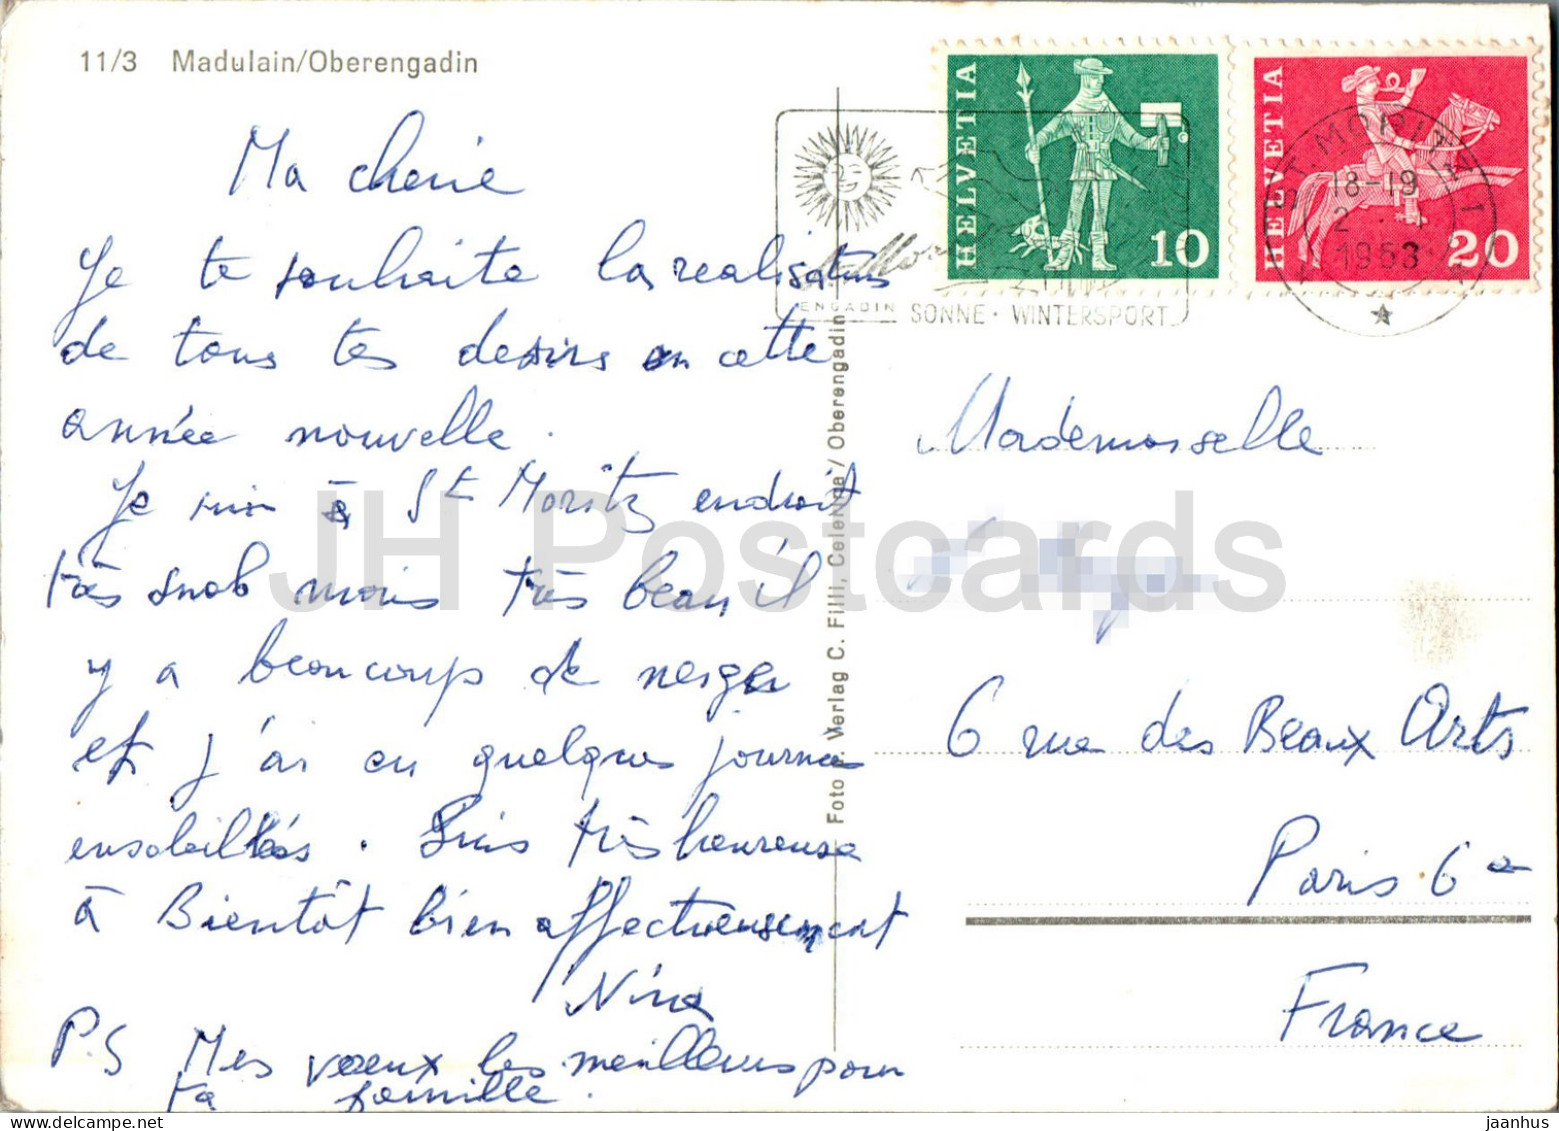 11/3 Madulain/Oberengadin
Ma cherie
Je te souhaite la realisation
de tous tes desirs en cette
année nouvelle.
Je suis à St Moritz endroit
très snob mais très beau il
y a beaucoup de neige
et j'ai eu quelques journées
ensoleillées. Suis très heureuse
à Bientôt bien affectueusement
Nina
P.S Mes voeux les meilleurs pour
ta famille.
Foto u. Verlag C. Filli, Celerina / Oberengadin
HELVETIA 10
HELVETIA 20
ENGADIN SONNE · WINTERSPORT
ST. MORITZ 1
18-19
1963
Mademoiselle
6 rue des Beaux Arts
Paris 6e
France
JH Postcards
delcampe.net
jaanhus